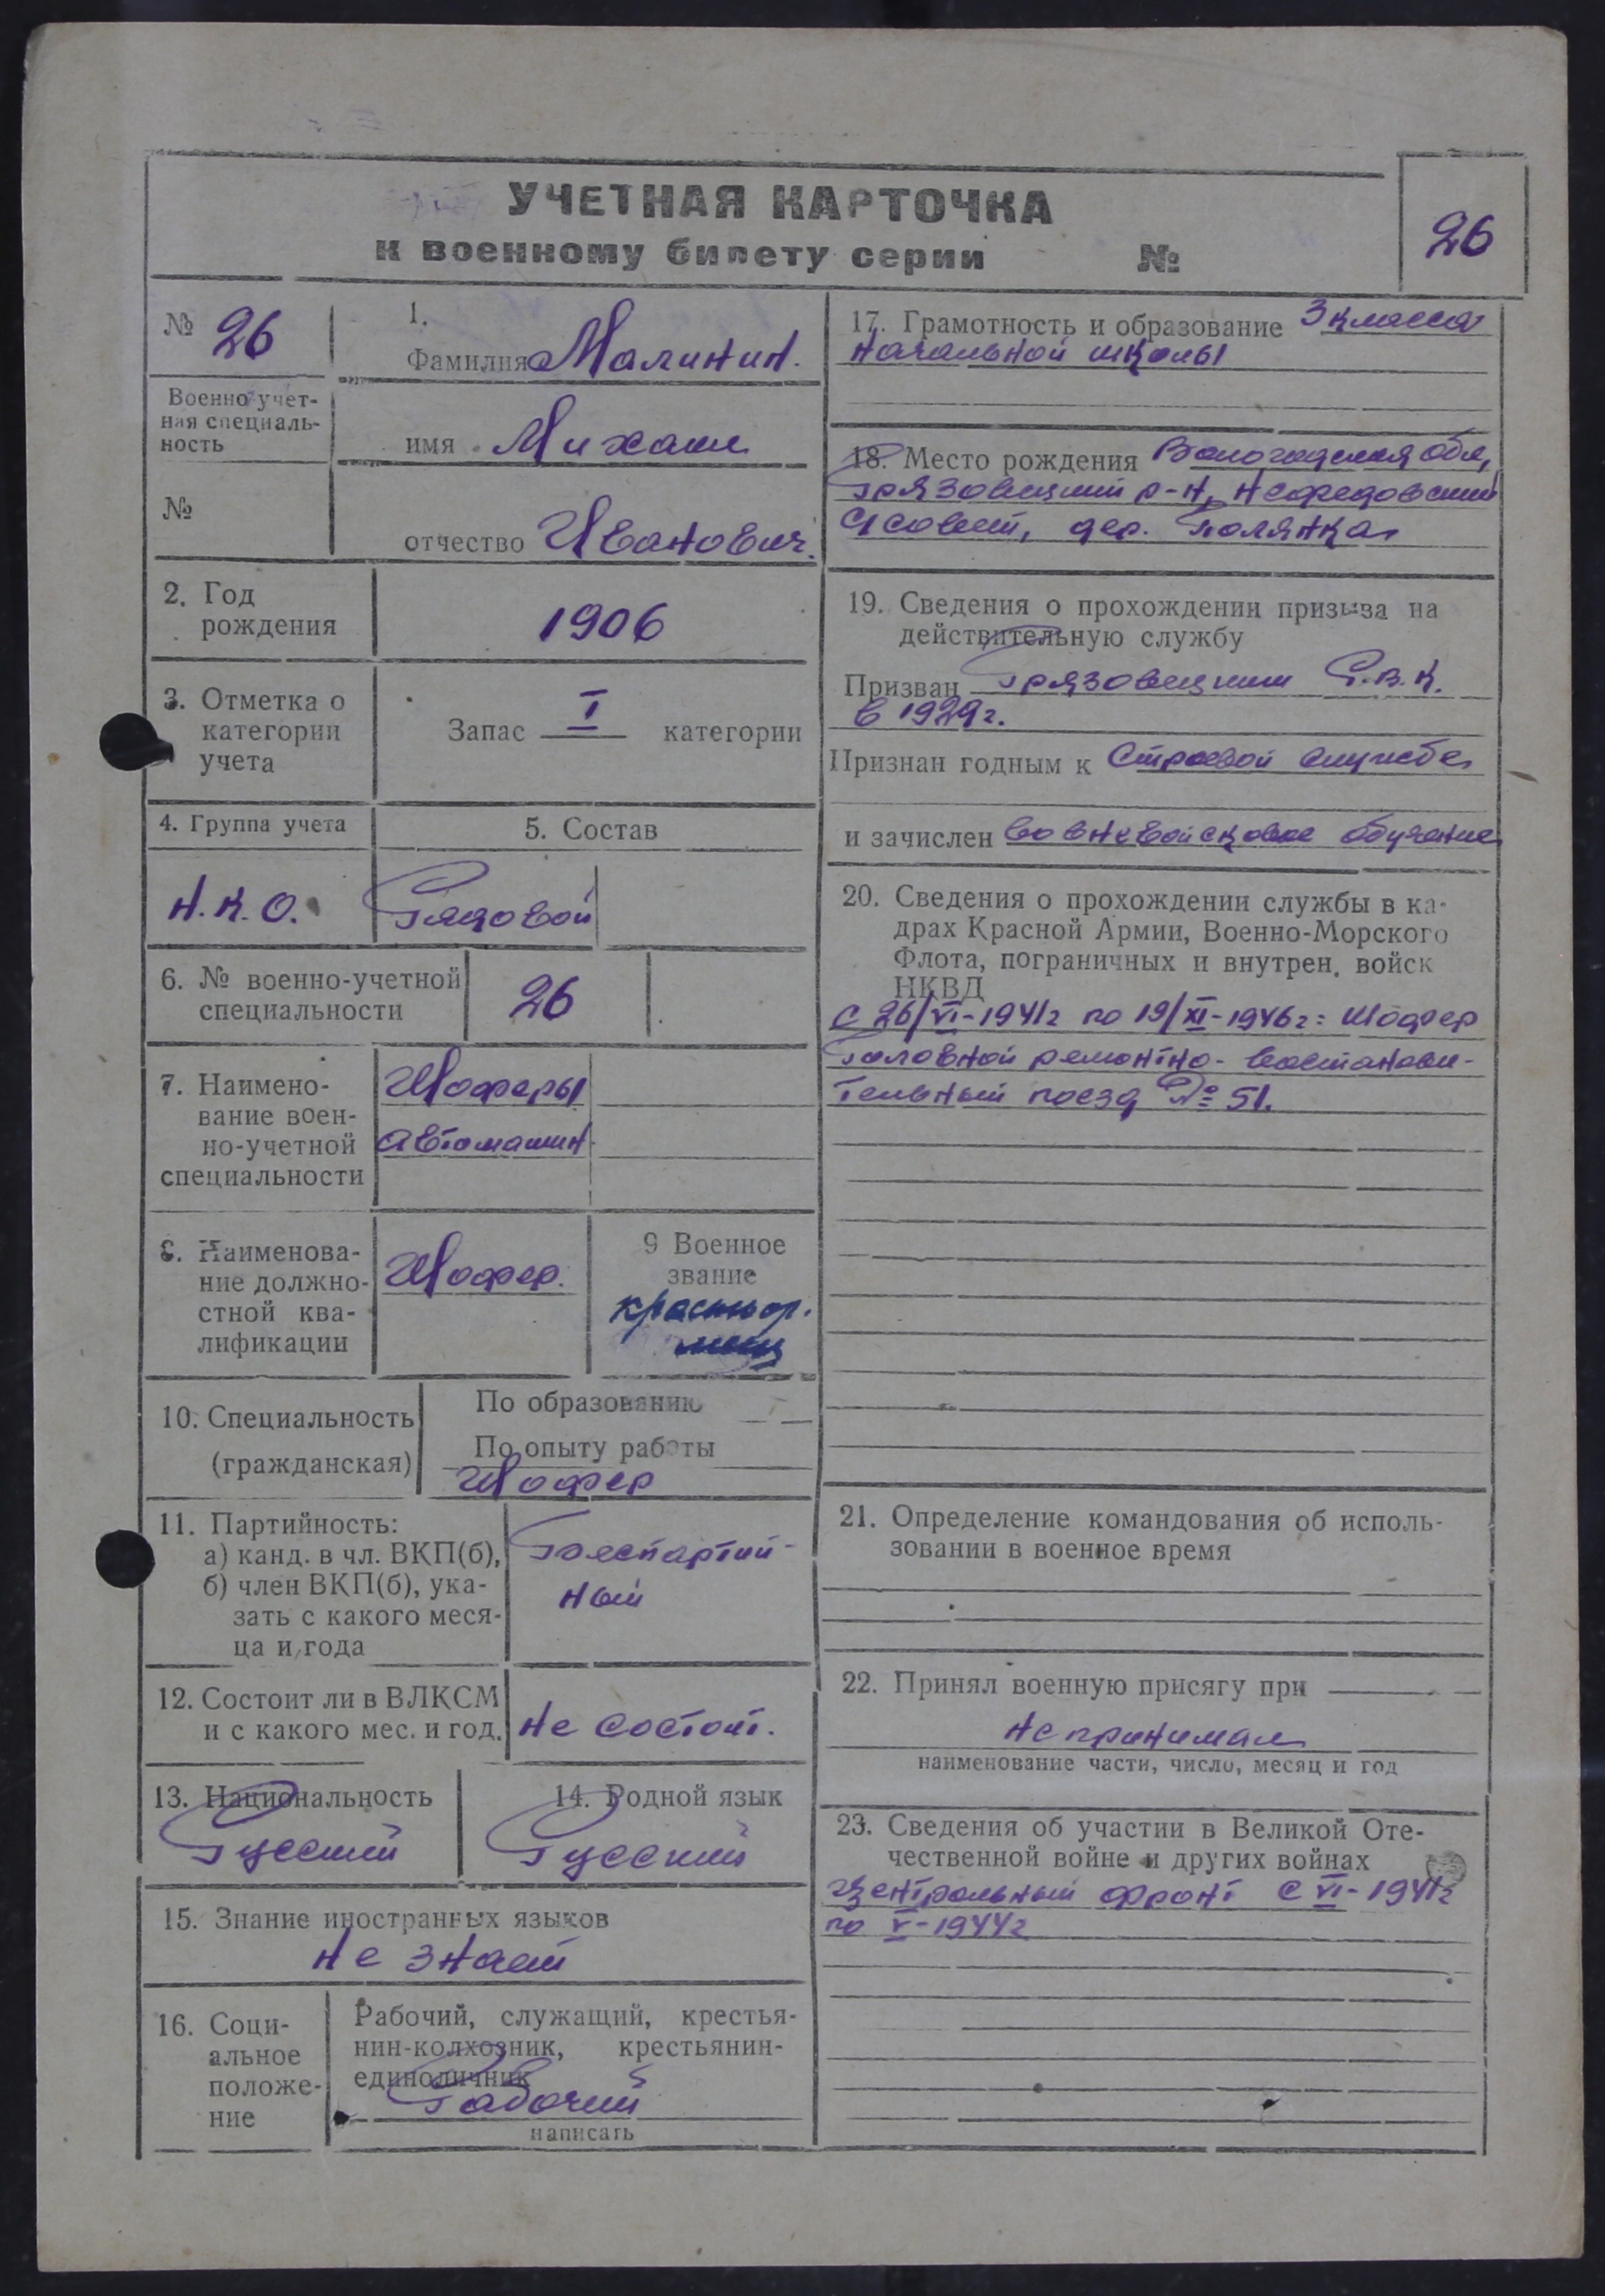 УЧЕТНАЯ КАРТОЧКА
к военному билету серии №
26
№ 26
Военно-учет-
ная специаль-
ность
№
1.
Фамилия Малинин.
имя Михаил
отчество Иванович.
2. Год
рождения
1906
3. Отметка о
категории
учета
Запас I категории
4. Группа учета
5. Состав
Н.К.О.
Рядовой
6. № военно-учетной
специальности
26
7. Наимено-
вание воен-
но-учетной
специальности
Шоферы
автомашин
8. Наименова-
ние должно-
стной ква-
лификации
Шофер.
9 Военное
звание
красноар-
меец
10. Специальность
(гражданская)
По образованию
По опыту работы
Шофер
11. Партийность:
а) канд. в чл. ВКП(б),
б) член ВКП(б), ука-
зать с какого меся-
ца и года
Беспартий-
ный
12. Состоит ли в ВЛКСМ
и с какого мес. и год.
не состоит.
13. Национальность
Русский
14. Родной язык
Русский
15. Знание иностранных языков
не знает
16. Соци-
альное
положе-
ние
Рабочий, служащий, крестья-
нин-колхозник, крестьянин-
единоличник
Рабочий
написать
17. Грамотность и образование 3 класса
начальной школы
18. Место рождения Вологодская обл,
Грязовецкий р-н,
С/совет, дер. Полянка
19. Сведения о прохождении призыва на
действительную службу
Призван Грязовецким Р.В.К.
в 1929г.
Признан годным к строевой службе
и зачислен во вневойсковое обучение
20. Сведения о прохождении службы в ка-
драх Красной Армии, Военно-Морского
Флота, пограничных и внутрен. войск
НКВД
с 26/VI-1941г по 19/XI-1946г: Шофер
Головной ремонтно-востанови-
тельный поезд № 51.
21. Определение командования об исполь-
зовании в военное время
22. Принял военную присягу при
не принимал
наименование части, число, месяц и год
23. Сведения об участии в Великой Оте-
чественной войне и других войнах
Центральный фронт с VI-1941г
по V-1944г